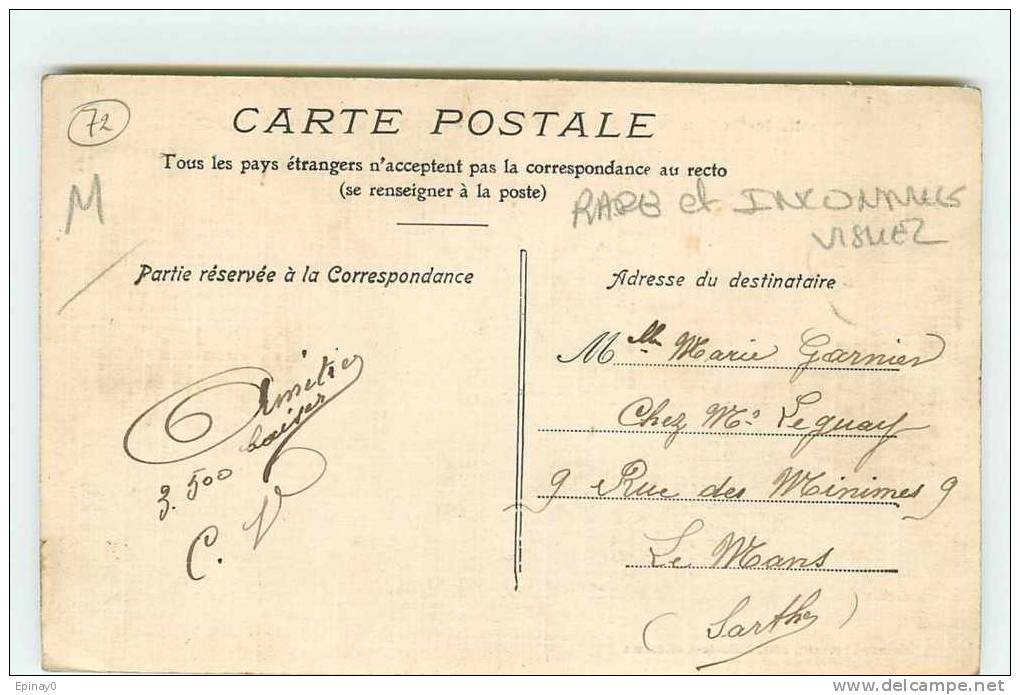 72
CARTE POSTALE
Tous les pays étrangers n'acceptent pas la correspondance au recto
(se renseigner à la poste)
M
RARE et INCONNUES
VISUEL
Partie réservée à la Correspondance
Adresse du destinataire
Amitiés
3.500 baiser
C. V.
Melle Marie Garnier
Chez Mr Leguay
9 Rue des Minimes 9
Le Mans
(Sarthe)
Epinay0
delcampe.net